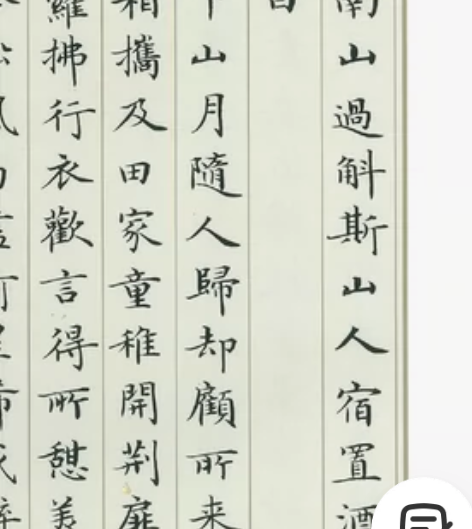 南山過斛斯山人宿置酒
白
下山月隨人歸却顧所来
相攜及田家童稚開荆扉
蘿拂行衣歡言得所憩美